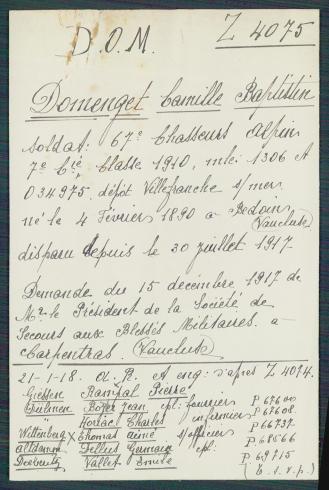 D.O.M. Z 4075
Domenget Camille Baptistin
soldat: 67e Chasseurs Alpin
7e Cie, Classe 1910, mle: 1306 et
034975, dépôt Villefranche s/mer
né le 4 Février 1890 à Bedoin
(Vaucluse)
disparu depuis le 30 juillet 1917.
Demande du 15 décembre 1917 de
Mr le Président de la Société de
Secours aux Blessés Militaires à
Carpentras (Vaucluse)
21-1-18. a. R. A eng: s'apres Z 4074.
Giessen Rampal Pierre
Dülmen Boyer Jean cpl: fourrier P 67600
Hortact Charles infirmier P 67608
Wittenberg Thomas aîné s/officier P 66737
Altdamm Tellus Germain cpl: P 68566
Doeberitz Vallet Emile P 69715
(T.s.v.p.)